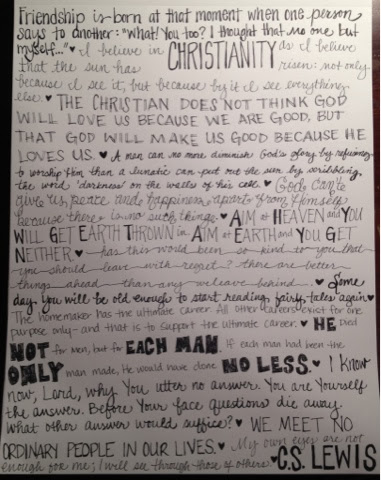 Friendship is born at that moment when one person
says to another: "What! You too? I thought that no one but
myself..." ♥ I believe in CHRISTIANITY as I believe
that the sun has risen: not only
because I see it, but because by it I see everything
else. ♥ THE CHRISTIAN DOES NOT THINK GOD
WILL LOVE US BECAUSE WE ARE GOOD, BUT
THAT GOD WILL MAKE US GOOD BECAUSE HE
LOVES US. ♥ A man can no more diminish God's glory by refusing
to worship Him than a lunatic can put out the sun by scribbling
the word 'darkness' on the walls of his cell. ♥ God can't
give us peace and happiness apart from Himself
because there is no such thing. ♥ AIM AT HEAVEN AND YOU
WILL GET EARTH THROWN IN. AIM AT EARTH AND YOU GET
NEITHER ♥ has this world been so kind to you that
you should leave with regret? there are better
things ahead than any we leave behind... ♥ Some
day you will be old enough to start reading fairy tales again ♥
The homemaker has the ultimate career. All other careers exist for one
purpose only- and that is to support the ultimate career. ♥ HE died
NOT for men, but for EACH MAN. If each man had been the
ONLY man made, He would have done NO LESS. ♥ I know
now, Lord, why You utter no answer. You are Yourself
the answer. Before Your face questions die away.
What other answer would suffice? ♥ WE MEET NO
ORDINARY PEOPLE IN OUR LIVES. ♥ My own eyes are not
enough for me; I will see through those of others ♥ C.S. LEWIS